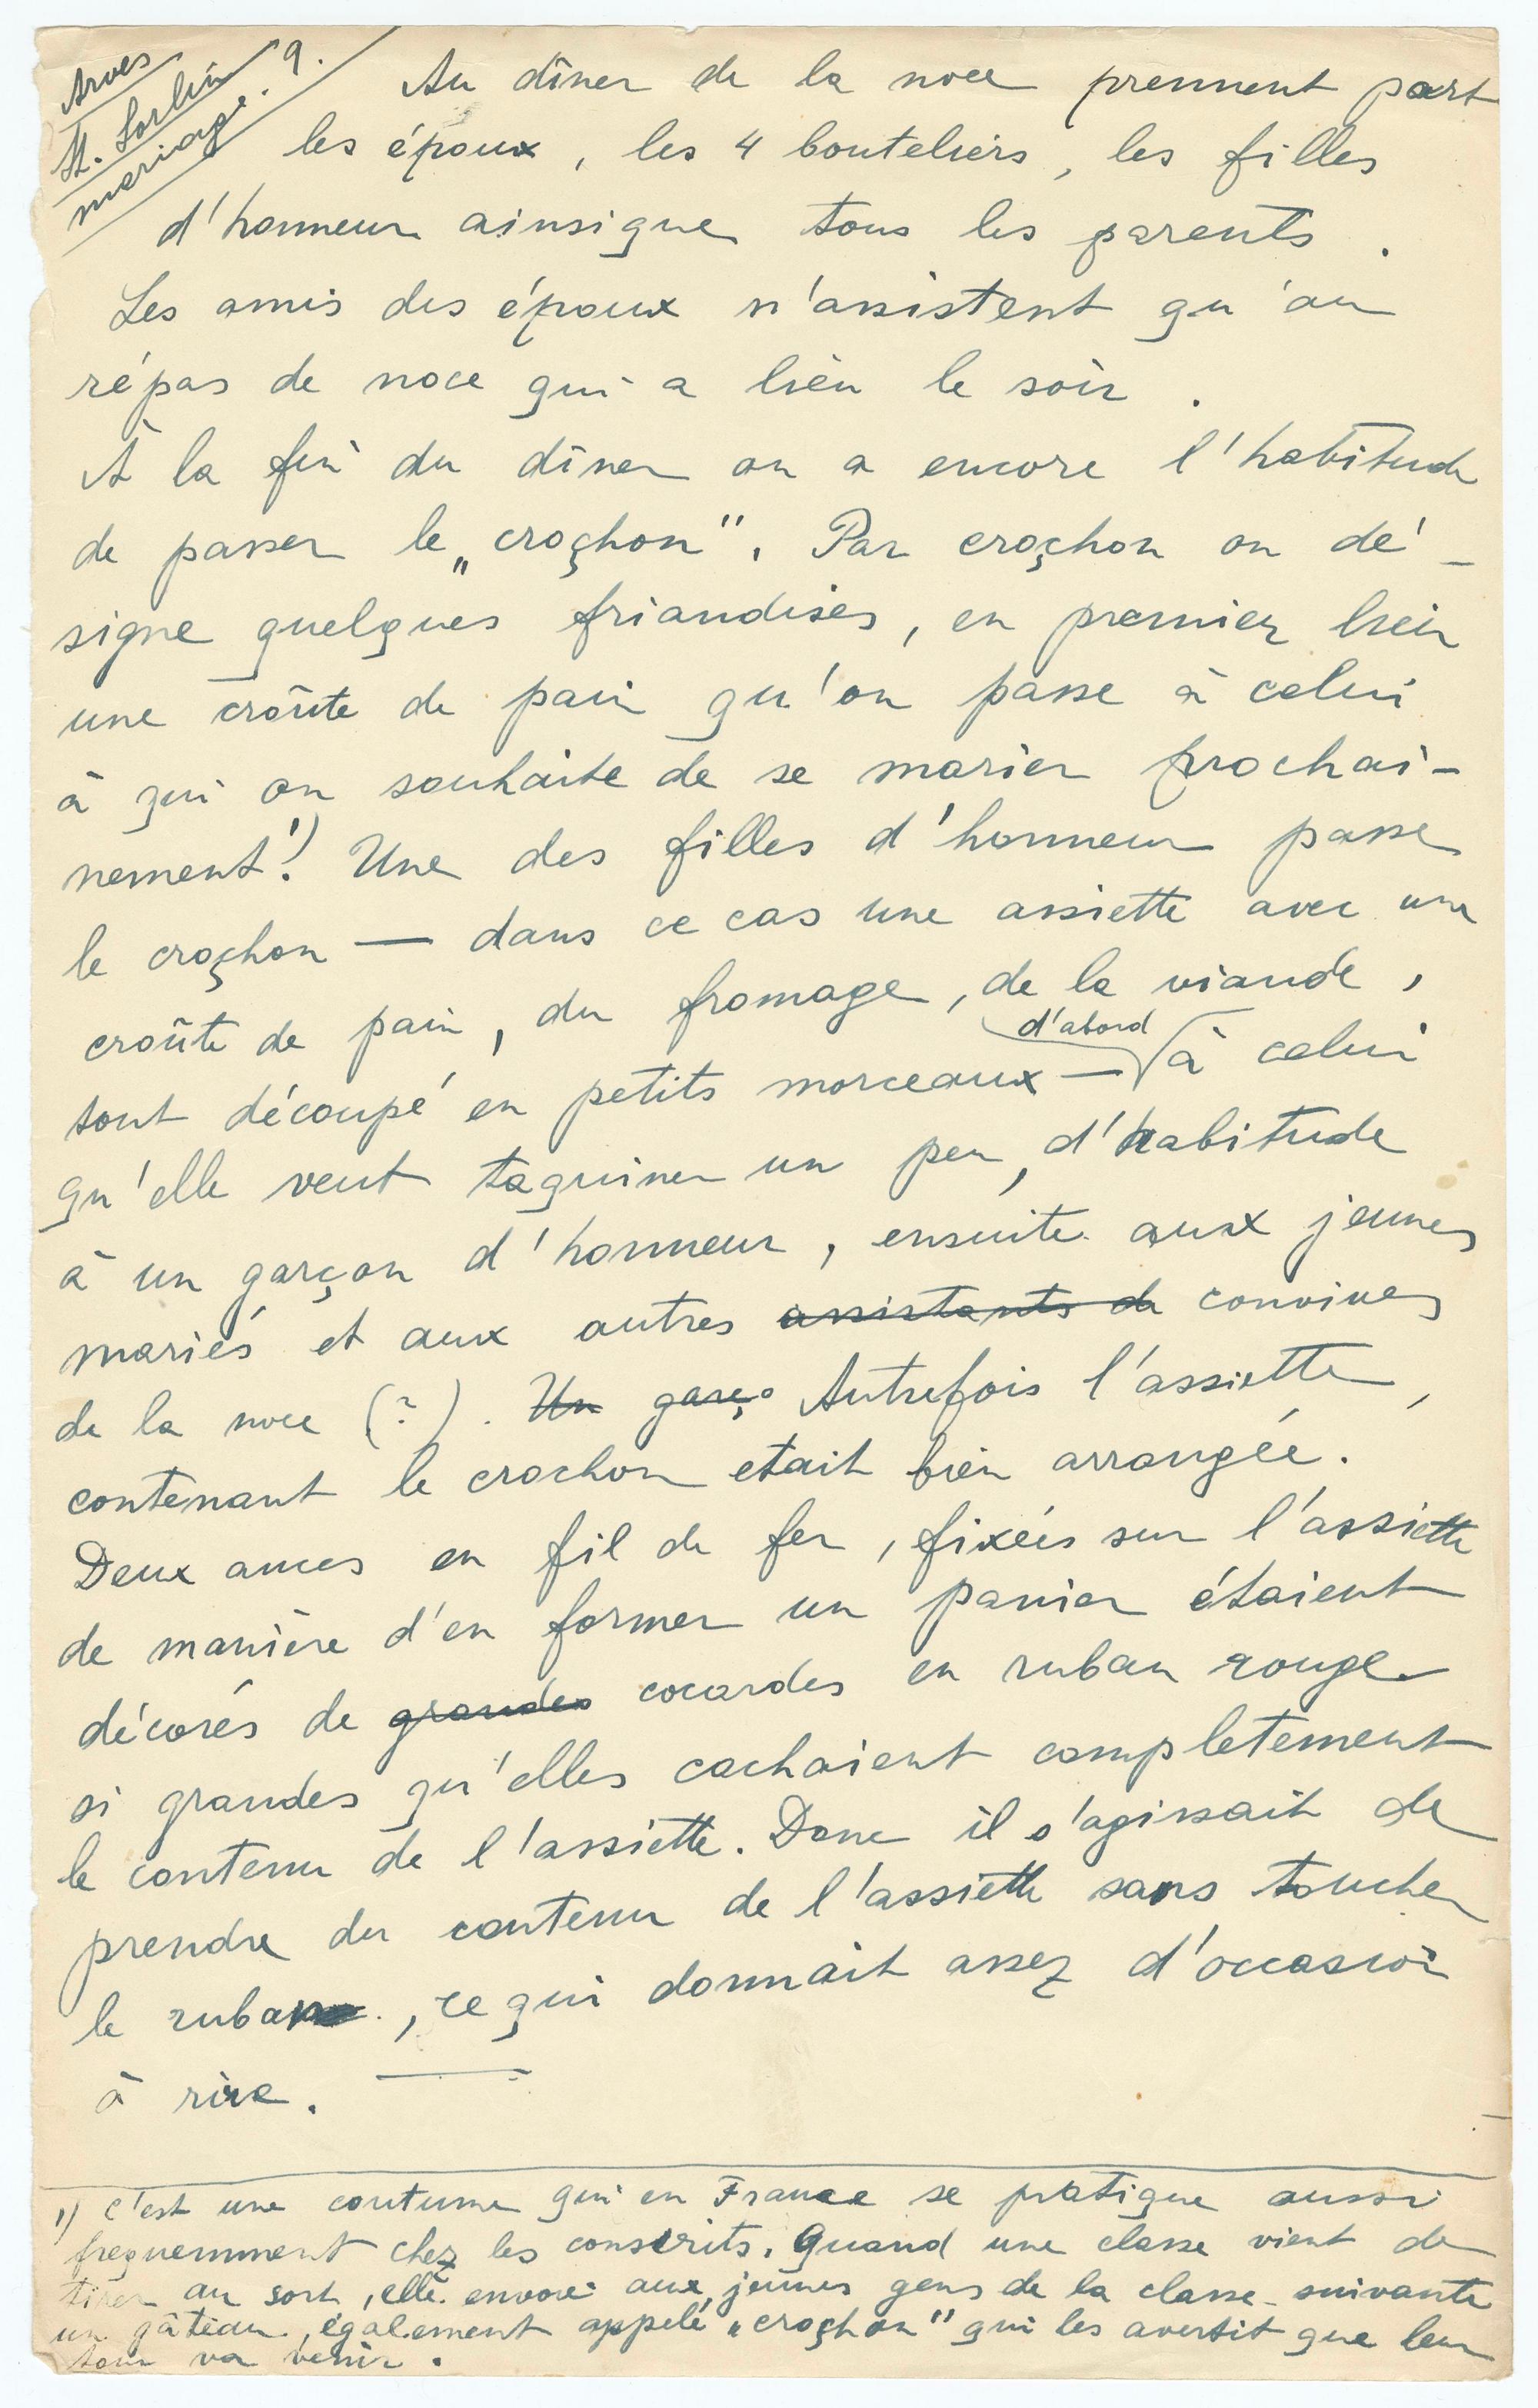 Arves
St. Sorlin 9.
mariage.
Au dîner de la noce prennent part
les époux, les 4 bouteliers, les filles
d'honneur ainsique tous les parents.
Les amis des époux n'assistent qu'au
répas de noce qui a lieu le soir.
À la fin du dîner on a encore l'habitude
de passer le „croçhon". Par croçhon on dé-
signe quelques friandises, en premier lieu
une croûte de pain qu'on passe à celui
à qui on souhaite de se marier prochai-
nement.¹) Une des filles d'honneur passe
le croçhon — dans ce cas une assiette avec une
croûte de pain, du fromage, de la viande,
tout découpé en petits morceaux — d'abord à celui
qu'elle veut taquiner un peu, d'habitude
à un garçon d'honneur, ensuite aux jeunes
mariés et aux autres assistants de convives
de la noce (?). Un garço Autrefois l'assiette,
contenant le crochon etait bien arrangée.
Deux anses en fil de fer, fixées sur l'assiette
de manière d'en former un panier étaient
décorés de grandes cocardes en ruban rouge
si grandes qu'elles cachaient completement
le contenu de l'assiette. Donc il s'agissait de
prendre du contenu de l'assiette sans toucher
le ruban, ce qui donnait assez d'occasion
à rire.
1) C'est une coutume qui en France se pratique aussi
frequemment chez les conscrits. Quand une classe vient de
tirer au sort, elle envoie aux jeunes gens de la classe suivante
un gâteau, également appelé „croçhon" qui les avertit que leur
tour va venir.